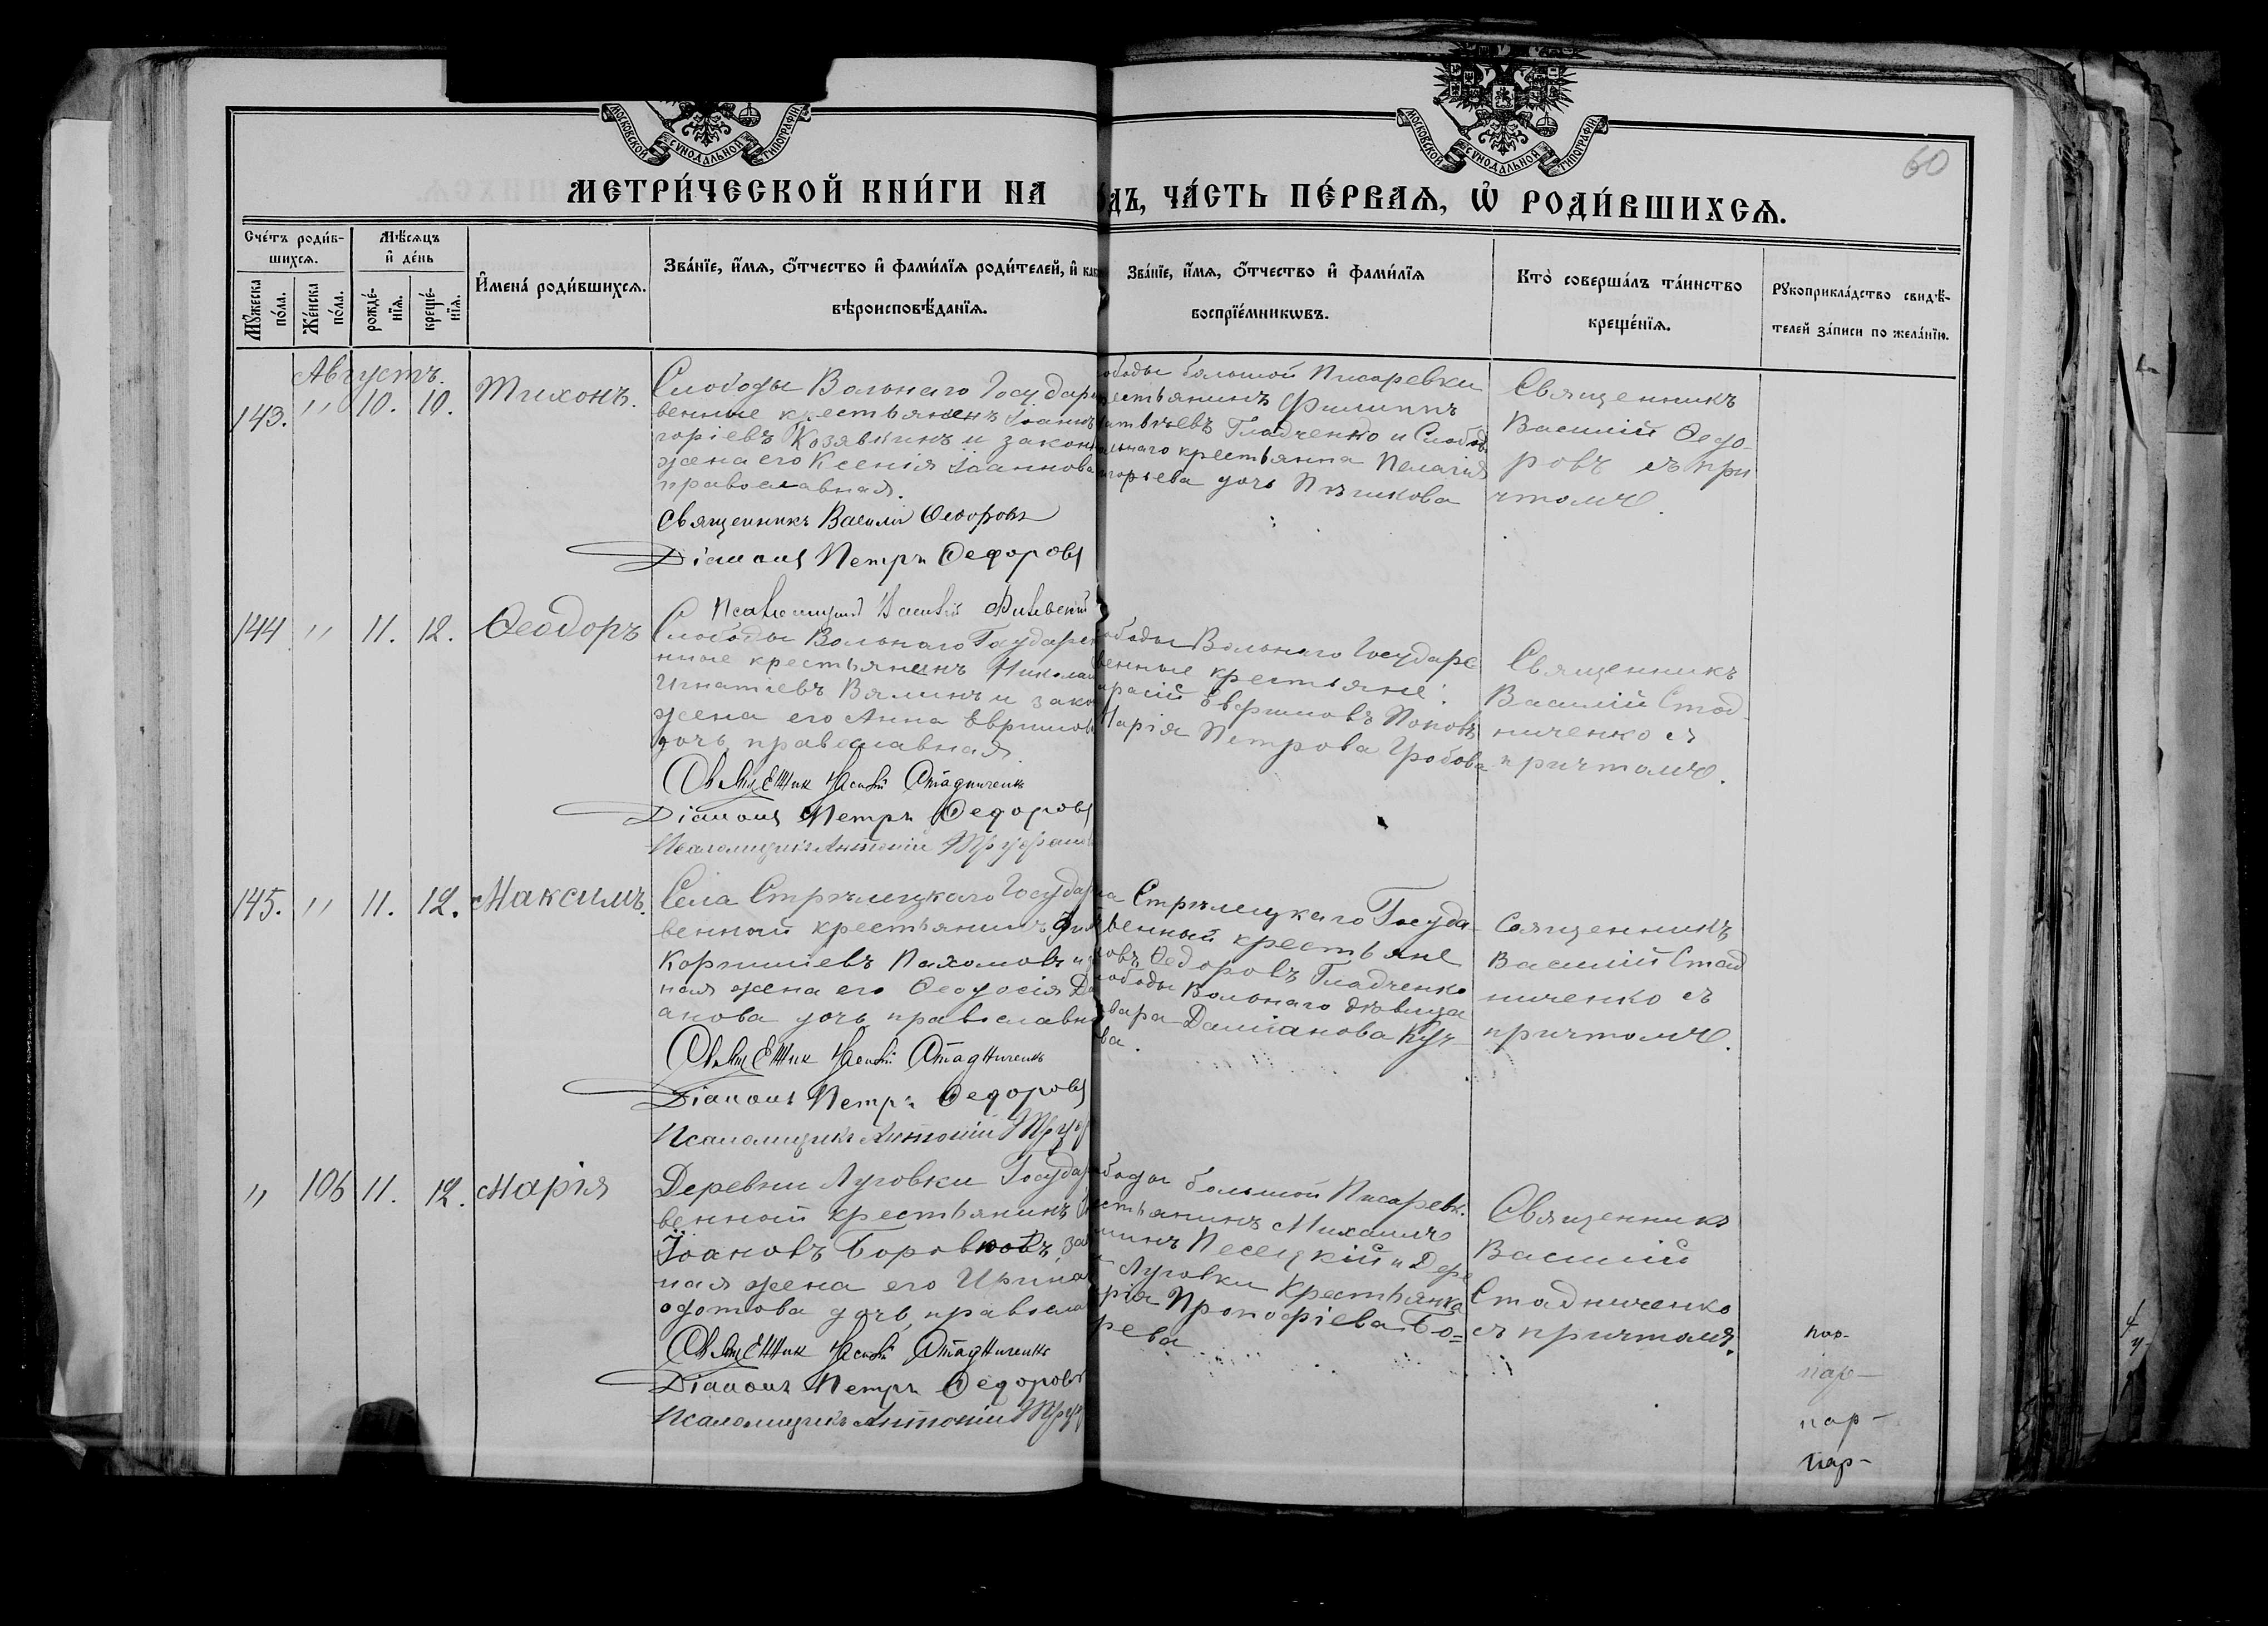 МОСКОВСКОЙ СѴНОДАЛЬНОЙ ТИПОГРАФІИ.
МОСКОВСКОЙ СѴНОДАЛЬНОЙ ТИПОГРАФІИ.
60
МЕТРИ́ЧЕСКОЙ КНИ́ГИ НА
ДЪ, ЧА́СТЬ ПЕ́РВАѦ, Ѡ҆ РОДИ́ВШИХСѦ.
Сче́тъ роди́в-
шихсѧ.
Мѣ́сѧцъ
и҆ де́нь
Мꙋ́жеска
по́ла.
Же́нска
по́ла.
рожде́-
нїѧ.
креще́-
нїѧ.
И҆мена́ роди́вшихсѧ.
Зва́нїе, и҆́мѧ, ѻ҆́тчество и҆ фами́лїѧ роди́телей, и҆ как
вѣроисповѣ́данїѧ.
Зва́нїе, и҆́мѧ, ѻ҆́тчество и҆ фами́лїѧ
воспрїе́мникѡвъ.
Кто̀ соверша́лъ та́инство
креще́нїѧ.
Рꙋкоприкла́дство свидѣ́-
телей за́писи по жела́нїю.
Августъ.
143. " 10. 10.
Тихонъ.
Слободы Вольнаго Госудаpс
венные крестьянинъ Іоаннъ
горіевъ Козявкинъ и закон
жена его Ксенія Іоаннова
православная.
Священникъ Василій Ѳеодоровъ
Діаконъ Петръ Ѳедоровъ
Псаломщикъ Василій
ободы большой Писаревки
рестьянинъ Филиппъ
атвѣевъ Гладченко и Слобод.
ольнаго крестьянина Пелагія
игорьева дочь
Священникъ
Василій Ѳедо-
ровъ съ при
чтомъ.
144 " 11. 12.
Ѳеодоръ
Слободы Вольнаго Государст
нные крестьянинъ Николай
Игнатіевъ Вялинъ и зако
жена его Анна Евфимова
дочь православная
Священник Василій Стадниченкъ
Діаконъ Петръ Ѳедоровъ
Псаломщикъ Антоній
ободы Вольнаго Государс
венные крестьяне:
расій Евфимовъ Поповъ
Марія Петрова Гробова
Священникъ
Василій Стад
ниченко съ
причтомъ.
145. " 11. 12.
Максимъ.
Села Стрѣлецкаго Государ
венной крестьянинъ
Корниліевъ Пахомовъ и
ная жена его Ѳеодосія Да
анова дочь православна
Священник Василій Стадниченкъ
Діаконъ Петръ Ѳедоровъ
Псаломщикъ Антоній
ла Стрѣлецкаго Госуда-
венный крестьяне
ковъ Ѳедоровъ Гладченко
лободы Вольнаго дѣвица
рвара Даміанова Куч-
ва.
Священникъ
Василій Стад
ниченко съ
причтомъ.
" 106 11. 12.
Марія
Деревни Луговки Государ
венной крестьянинъ
Іоановъ Боровковъ, за
ная жена его Ирина
одотова дочь, правосла
Священник Василій Стадниченкъ
Діаконъ Петръ Ѳедоровъ
Псаломщикъ Антоній
ободы большой Писаревк.
естьянинъ Михаилъ
минъ Песецкій и Дере
и Луговки Крестьянка
рія Прокофіева Бо=
рева
Священникъ
Василій
Стадниченко
съ причтомъ.
пар-
пар-
пар-